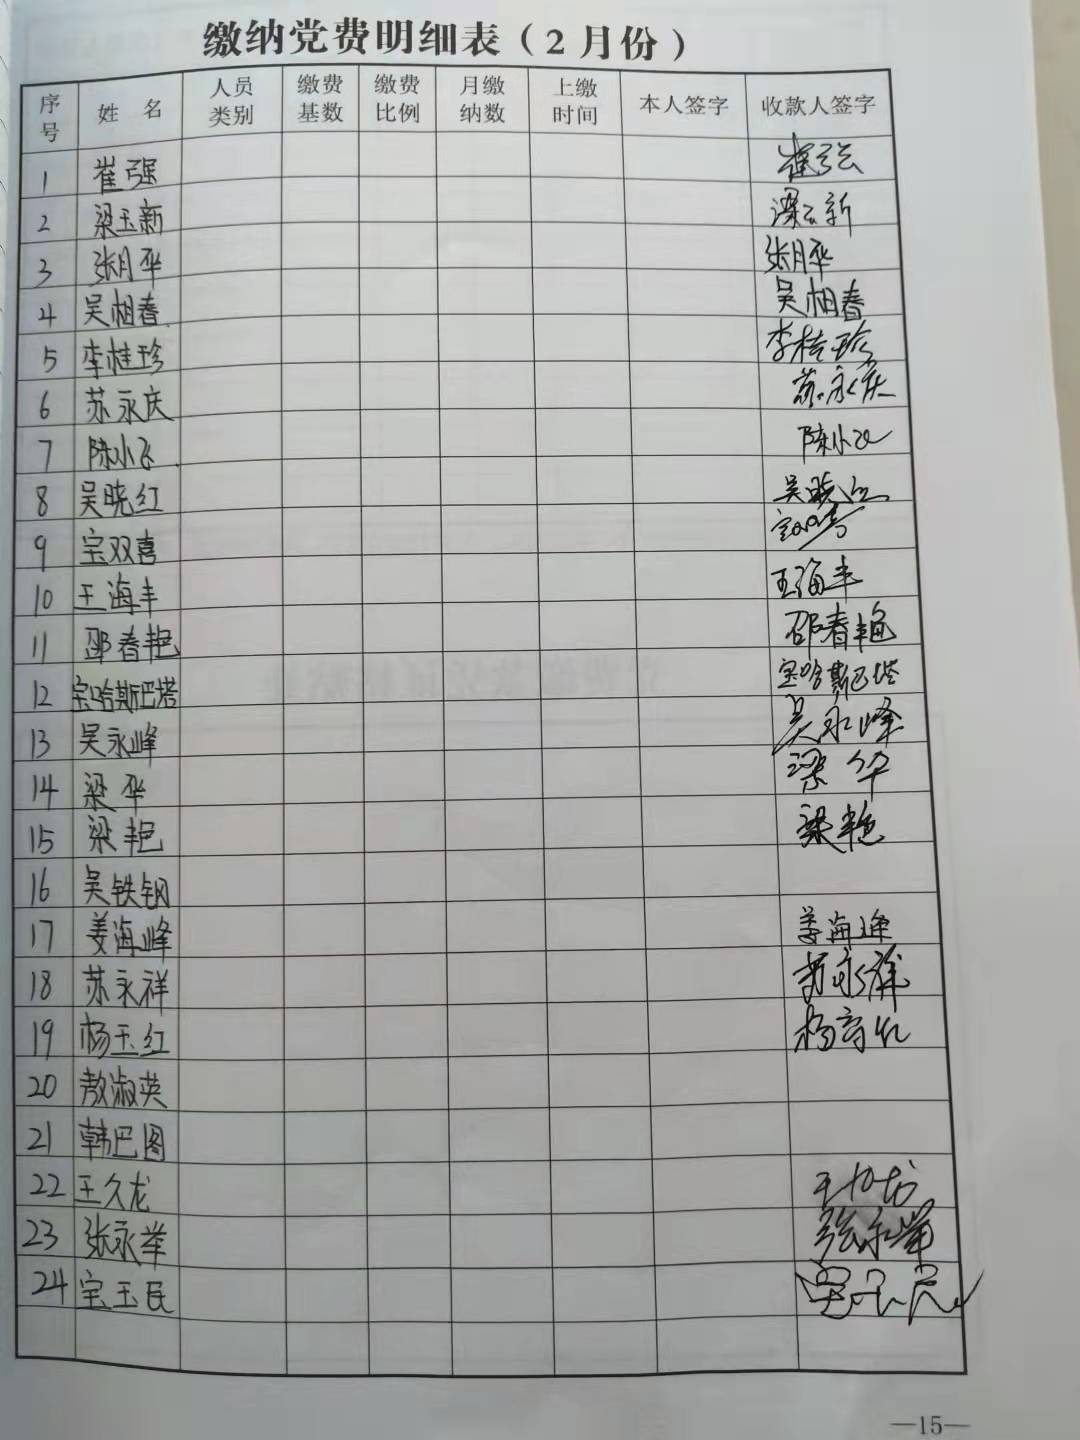 缴纳党费明细表（2月份）
序号 姓 名 人员类别 缴费基数 缴费比例 月缴纳数 上缴时间 本人签字 收款人签字
1 崔强 崔强
2 梁玉新 梁玉新
3 张月华 张月华
4 吴相春 吴相春
5 李桂珍 李桂珍
6 苏永庆 苏永庆
7 陈小飞 陈小飞
8 吴晓红 吴晓红
9 宝双喜 宝双喜
10 王海丰 王海丰
11 邵春艳 邵春艳
12 宝哈斯巴塔 宝哈斯巴塔
13 吴永峰 吴永峰
14 梁华 梁华
15 梁艳 梁艳
16 吴铁钢
17 姜海峰 姜海峰
18 苏永祥 苏永祥
19 杨玉红 杨
20 敖淑英
21 韩巴图
22 王久龙 王久龙
23 张永举 张永举
24 宝玉民 宝玉民
—15—